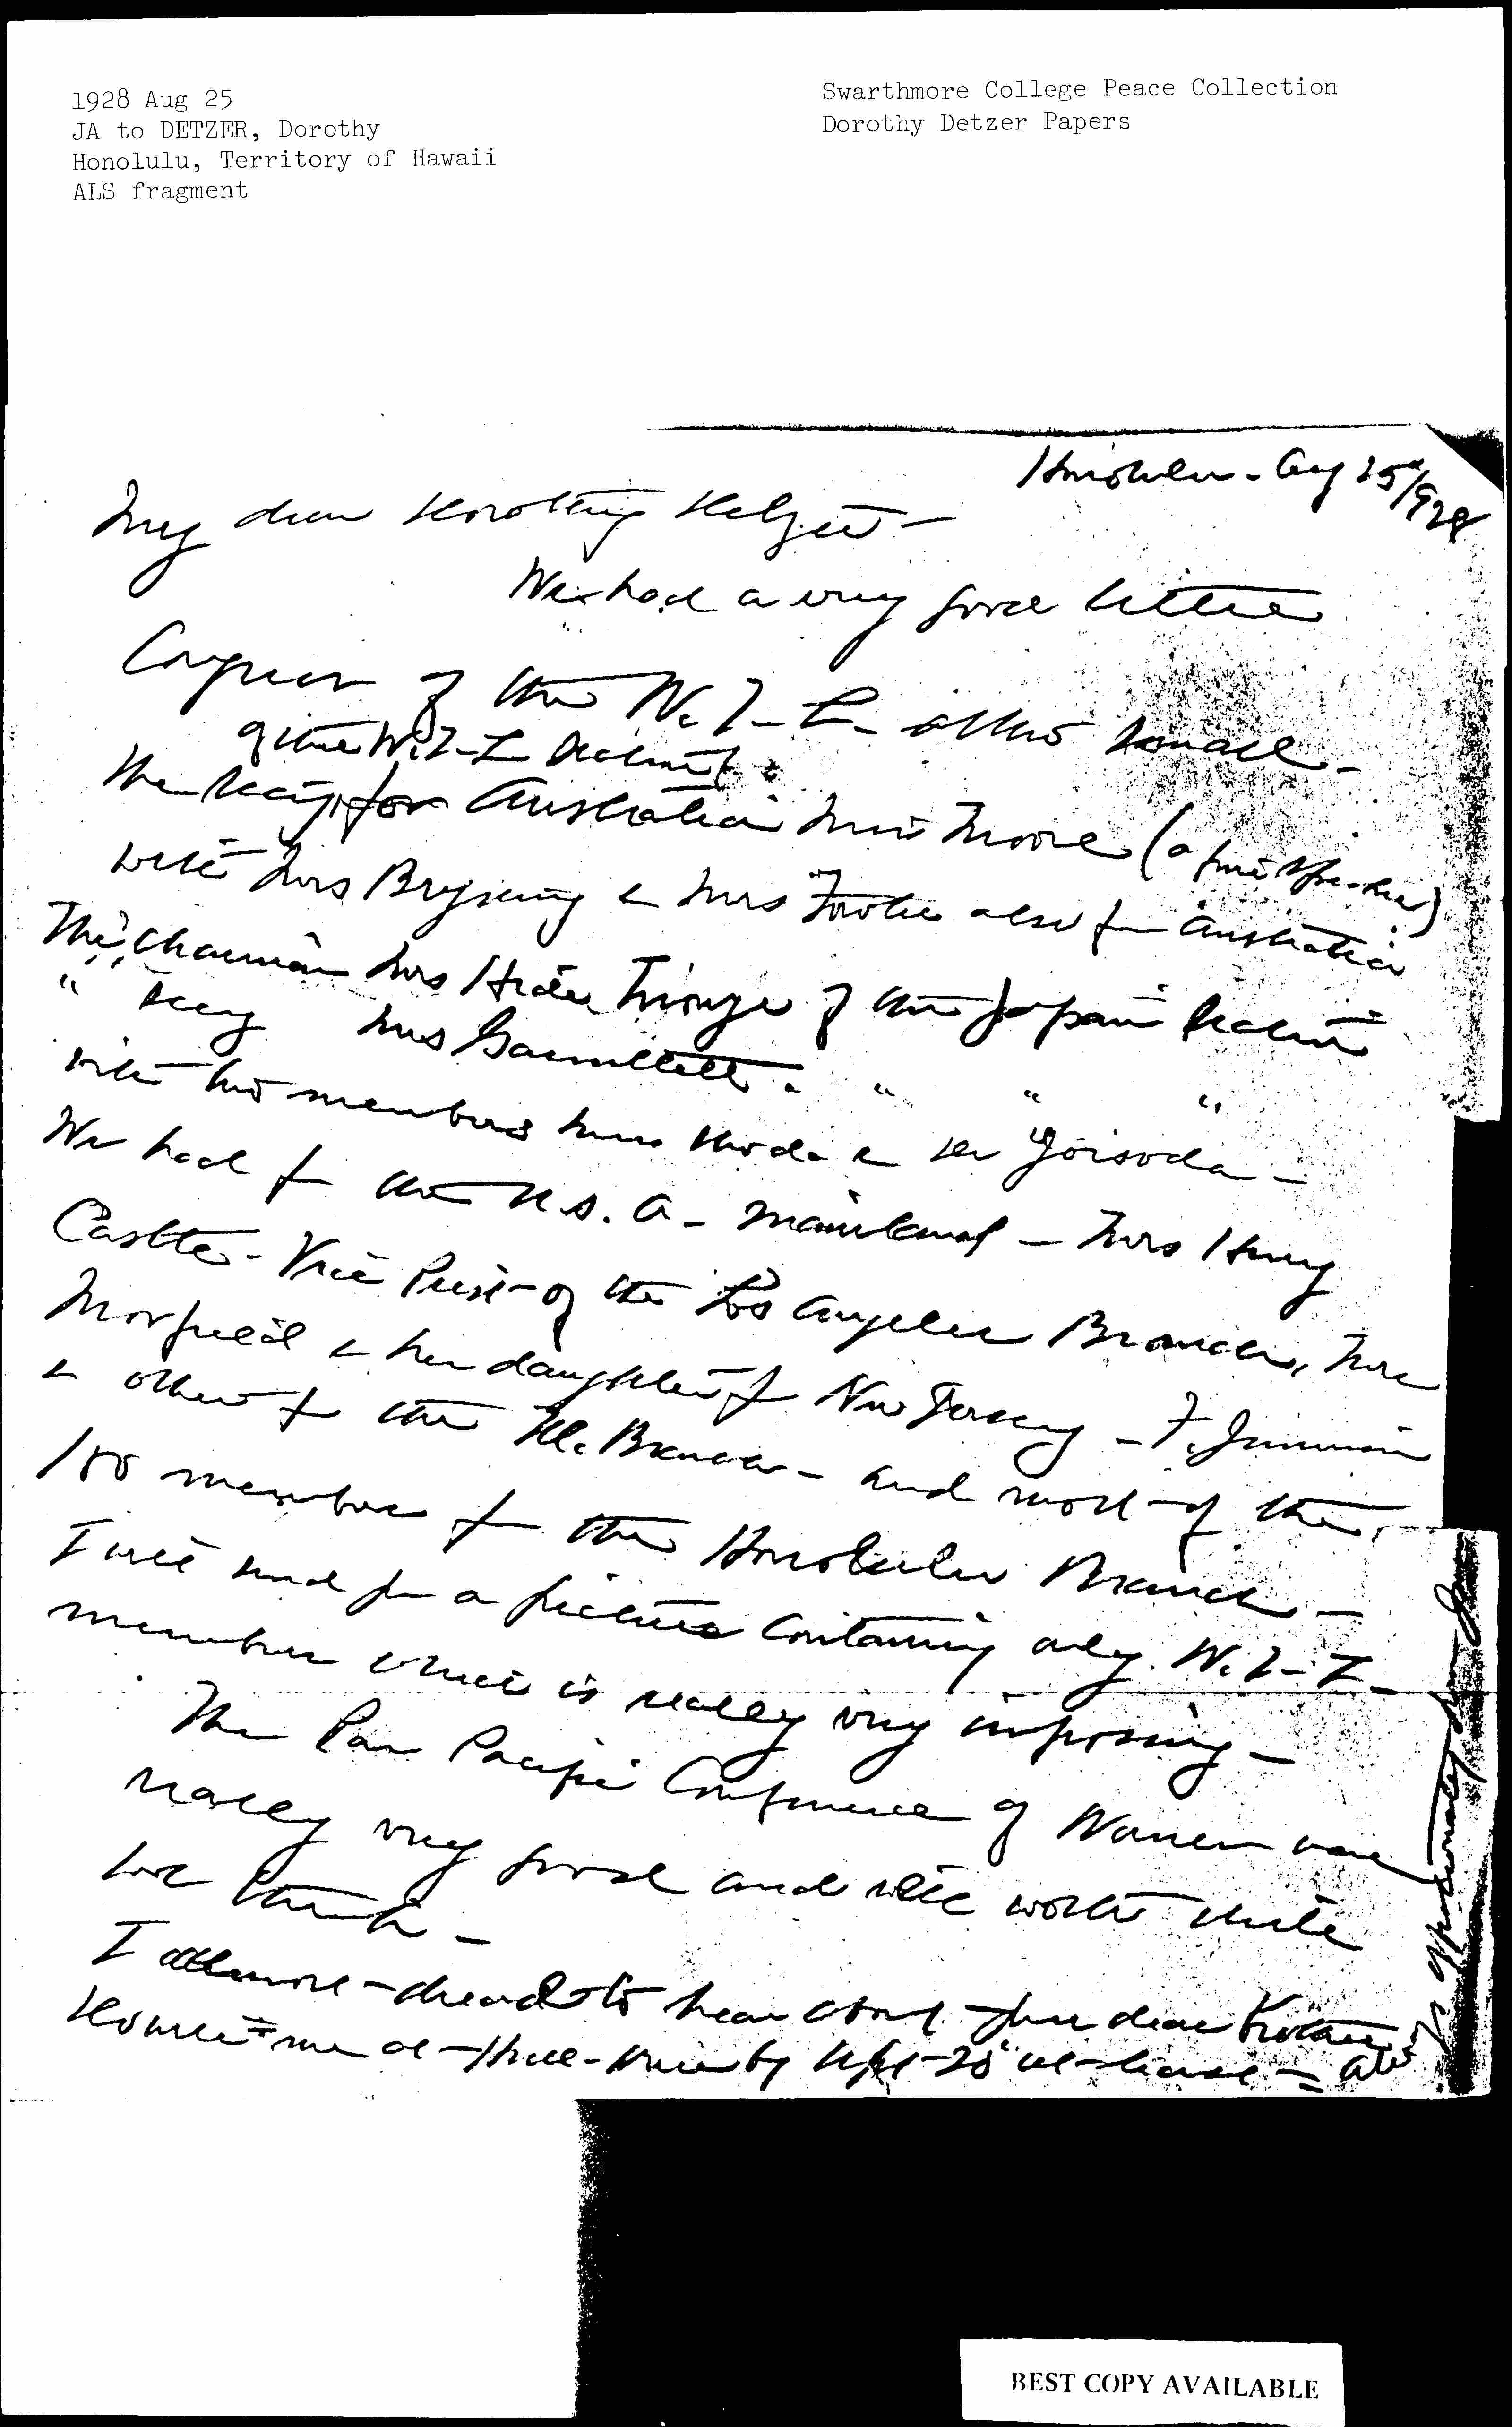 1928 Aug 25
JA to DETZER, Dorothy
Honolulu, Territory of Hawaii
ALS fragment
Swarthmore College Peace Collection
Dorothy Detzer Papers
Honolulu - Aug 25" 1928
My dear Dorothy Detzer -
We had a very good little
Congress of the W.I.L. altho small -
of the W.I.L section
The Secy for Australia Miss Moore (a fine speaker)
with Mrs & Mrs also fr Australia
The Chairman Mrs of the Japan Section
" Secy Mrs Gauntlett " " "
with two members Miss & Dr
We had f the U.S.A. - mainland - Mrs
Castle - Vice Prest of the Los Angeles Branch, Mrs
& her daughter f New Jersey -
& others f the Ill. Branch - and most of the
100 members f the Honolulu Branch -
I will send you a picture containing only W.I.L.
members which is really very imposing -
The Pan Pacific Conference of Women was
really very good and well worth while
we think -
I almost - dread to hear about your dear brother
me at - Hull-House by Sept - 20" at - least =
affectionately yours Jane
BEST COPY AVAILABLE